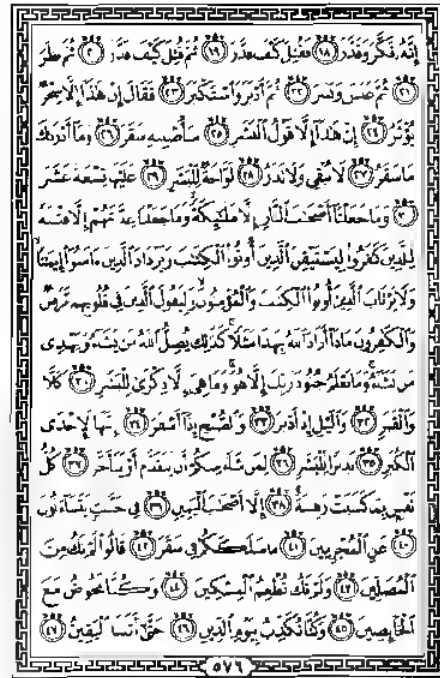 إِنَّهُ فَكَّرَ وَقَدَّرَ ١٨ فَقُتِلَ كَيْفَ قَدَّرَ ١٩ ثُمَّ قُتِلَ كَيْفَ قَدَّرَ ٢٠ ثُمَّ نَظَرَ
٢١ ثُمَّ عَبَسَ وَبَسَرَ ٢٢ ثُمَّ أَدْبَرَ وَاسْتَكْبَرَ ٢٣ فَقَالَ إِنْ هَٰذَا إِلَّا سِحْرٌ
يُؤْثَرُ ٢٤ إِنْ هَٰذَا إِلَّا قَوْلُ الْبَشَرِ ٢٥ سَأُصْلِيهِ سَقَرَ ٢٦ وَمَا أَدْرَاكَ
مَا سَقَرُ ٢٧ لَا تُبْقِي وَلَا تَذَرُ ٢٨ لَوَّاحَةٌ لِّلْبَشَرِ ٢٩ عَلَيْهَا تِسْعَةَ عَشَرَ
٣٠ وَمَا جَعَلْنَا أَصْحَابَ النَّارِ إِلَّا مَلَائِكَةً وَمَا جَعَلْنَا عِدَّتَهُمْ إِلَّا فِتْنَةً
لِّلَّذِينَ كَفَرُوا لِيَسْتَيْقِنَ الَّذِينَ أُوتُوا الْكِتَابَ وَيَزْدَادَ الَّذِينَ آمَنُوا إِيمَانًا
وَلَا يَرْتَابَ الَّذِينَ أُوتُوا الْكِتَابَ وَالْمُؤْمِنُونَ وَلِيَقُولَ الَّذِينَ فِي قُلُوبِهِم مَّرَضٌ
وَالْكَافِرُونَ مَاذَا أَرَادَ اللَّهُ بِهَٰذَا مَثَلًا كَذَٰلِكَ يُضِلُّ اللَّهُ مَن يَشَاءُ وَيَهْدِي
مَن يَشَاءُ وَمَا يَعْلَمُ جُنُودَ رَبِّكَ إِلَّا هُوَ وَمَا هِيَ إِلَّا ذِكْرَىٰ لِلْبَشَرِ ٣١ كَلَّا
وَالْقَمَرِ ٣٢ وَاللَّيْلِ إِذْ أَدْبَرَ ٣٣ وَالصُّبْحِ إِذَا أَسْفَرَ ٣٤ إِنَّهَا لَإِحْدَى
الْكُبَرِ ٣٥ نَذِيرًا لِّلْبَشَرِ ٣٦ لِمَن شَاءَ مِنكُمْ أَن يَتَقَدَّمَ أَوْ يَتَأَخَّرَ ٣٧ كُلُّ
نَفْسٍ بِمَا كَسَبَتْ رَهِينَةٌ ٣٨ إِلَّا أَصْحَابَ الْيَمِينِ ٣٩ فِي جَنَّاتٍ يَتَسَاءَلُونَ
٤٠ عَنِ الْمُجْرِمِينَ ٤١ مَا سَلَكَكُمْ فِي سَقَرَ ٤٢ قَالُوا لَمْ نَكُ مِنَ
الْمُصَلِّينَ ٤٣ وَلَمْ نَكُ نُطْعِمُ الْمِسْكِينَ ٤٤ وَكُنَّا نَخُوضُ مَعَ
الْخَائِضِينَ ٤٥ وَكُنَّا نُكَذِّبُ بِيَوْمِ الدِّينِ ٤٦ حَتَّىٰ أَتَانَا الْيَقِينُ ٤٧
٥٧٦